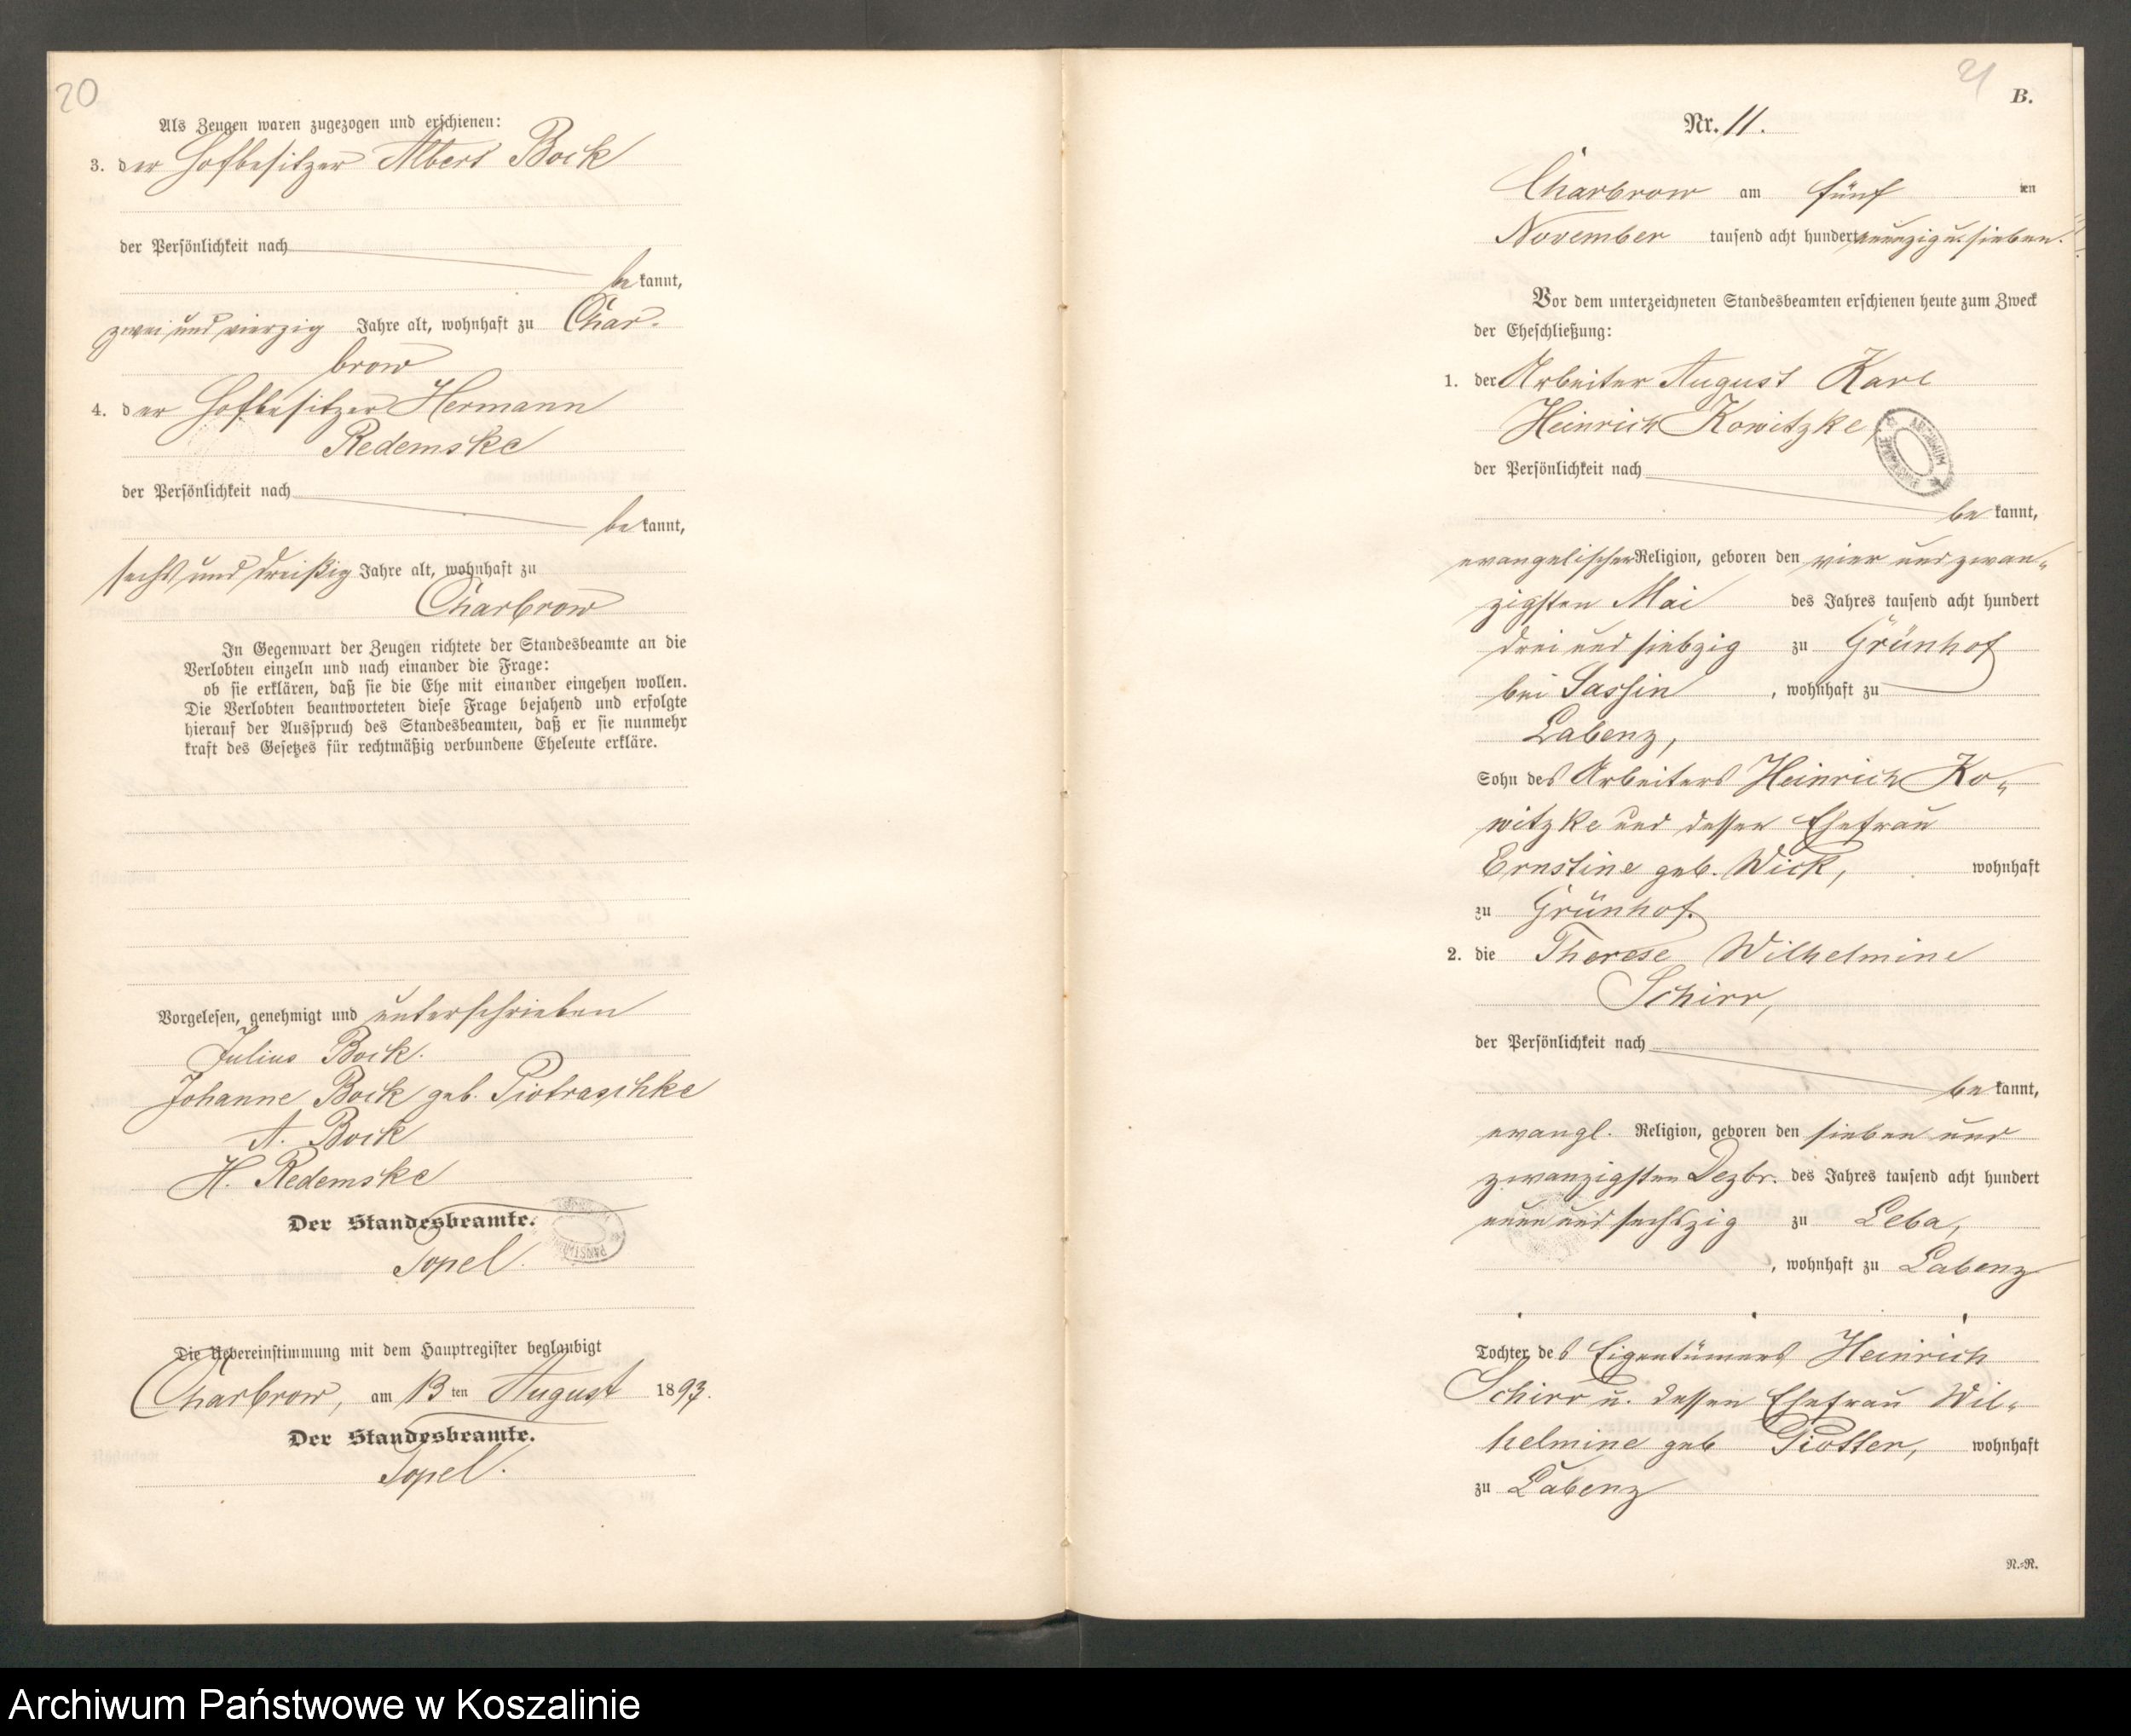 20
Als Zeugen waren zugezogen und erschienen:
3. der Hofbesitzer Albert Bock
der Persönlichkeit nach
be kannt,
zwei und vierzig Jahre alt, wohnhaft zu Char-
brow
4. der Hofbesitzer Hermann
Redemske
der Persönlichkeit nach
be kannt,
sechs und dreißig Jahre alt, wohnhaft zu
Charbrow
In Gegenwart der Zeugen richtete der Standesbeamte an die
Verlobten einzeln und nach einander die Frage:
ob sie erklären, daß sie die Ehe mit einander eingehen wollen.
Die Verlobten beantworteten diese Frage bejahend und erfolgte
hierauf der Ausspruch des Standesbeamten, daß er sie nunmehr
kraft des Gesetzes für rechtmäßig verbundene Eheleute erkläre.
Vorgelesen, genehmigt und unterschrieben
Julius Bock.
Johanne Bock geb. Piotraschke
A. Bock
H. Redemske
Der Standesbeamte.
Topel.
Die Uebereinstimmung mit dem Hauptregister beglaubigt
Charbrow, am 13 ten August 1897.
Der Standesbeamte.
Topel.
21
B.
Nr. 11.
Charbrow am fünf ten
November tausend acht hundert neunzig u. sieben.
Vor dem unterzeichneten Standesbeamten erschienen heute zum Zweck
der Eheschließung:
1. der Arbeiter August Karl
Heinrich Kowitzke,
der Persönlichkeit nach
be kannt,
evangelischer Religion, geboren den vier und zwan-
zigsten Mai des Jahres tausend acht hundert
drei und siebzig zu Grünhof
bei Sassin, wohnhaft zu
Labenz,
Sohn des Arbeiters Heinrich Ko-
witzke und dessen Ehefrau
Ernstine geb. Wick, wohnhaft
zu Grünhof.
2. die Therese Wilhelmine
Schirr,
der Persönlichkeit nach
be kannt,
evangl. Religion, geboren den sieben und
zwanzigsten Dezbr. des Jahres tausend acht hundert
neun und sechszig zu Leba,
, wohnhaft zu Labenz
Tochter des Eigentümers Heinrich
Schirr u. dessen Ehefrau Wil-
helmine geb Piotter, wohnhaft
zu Labenz
N.-R.
Archiwum Państwowe w Koszalinie